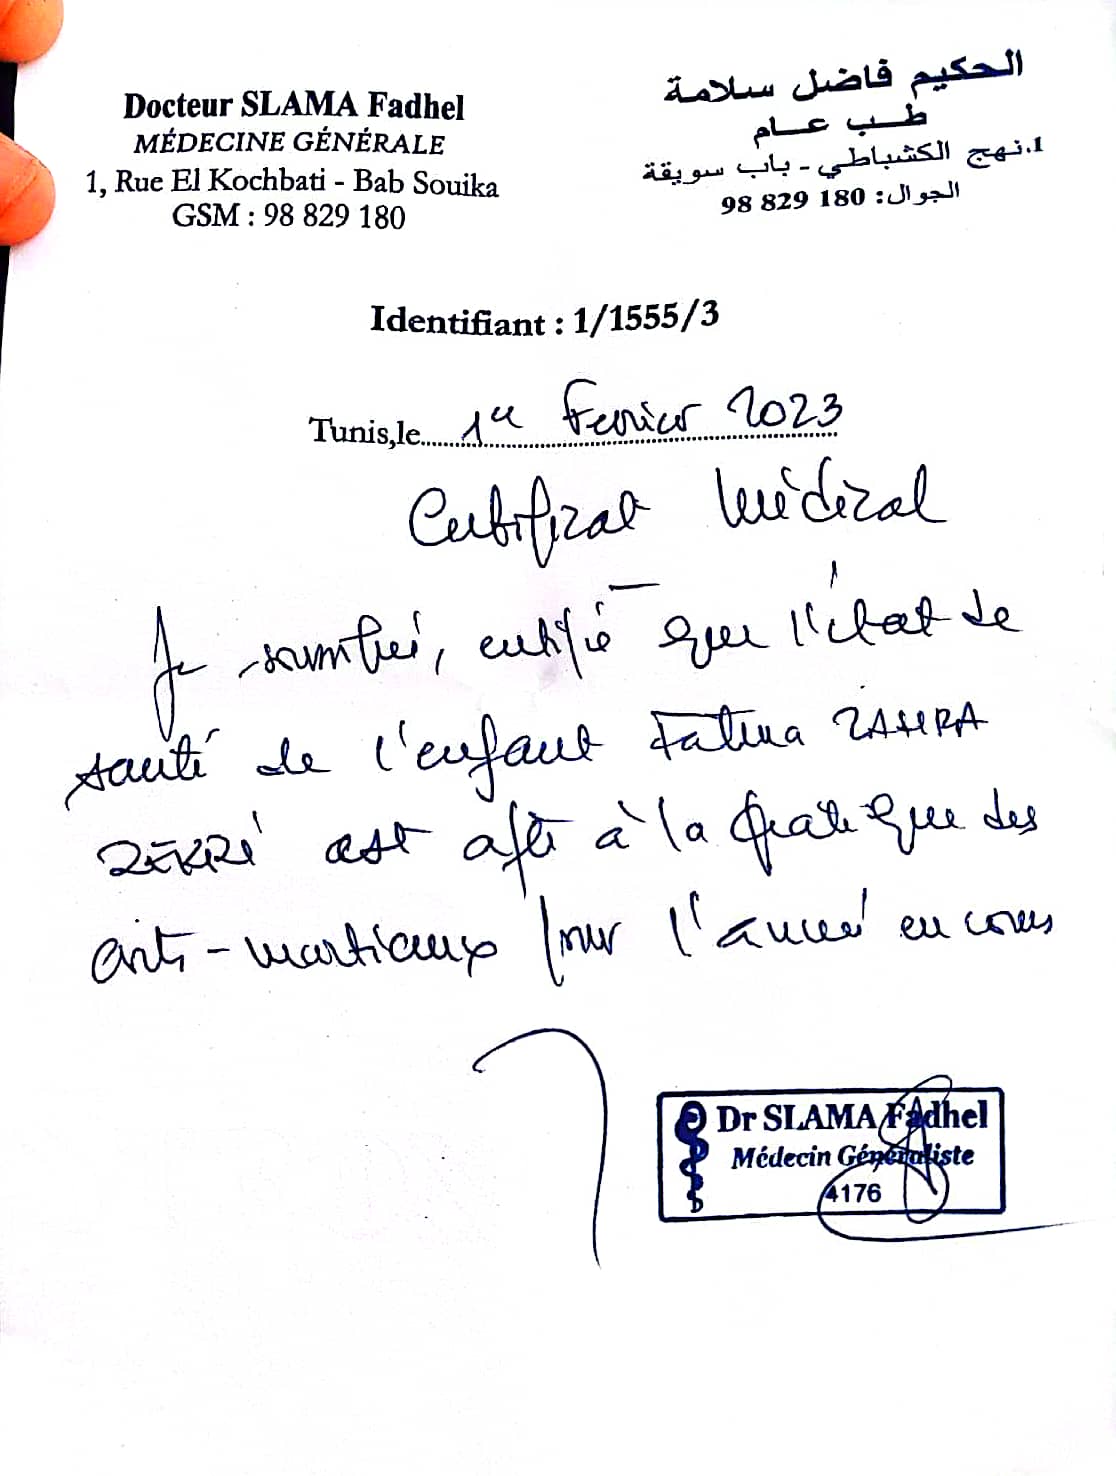 Docteur SLAMA Fadhel
MÉDECINE GÉNÉRALE
1, Rue El Kochbati - Bab Souika
GSM : 98 829 180
الحكيم فاضل سلامة
طب عام
1.نهج الكشباطي - باب سويقة
الجوال: 180 829 98
Identifiant : 1/1555/3
Tunis,le 1er Fevrier 2023
Certificat Médical
Je soussigné, certifie que l'état de
santé de l'enfant Fatma ZAHRA
ZEKRI est apte à la pratique des
arts-martiaux pour l'année en cours
Dr SLAMA Fadhel
Médecin Généraliste
4176